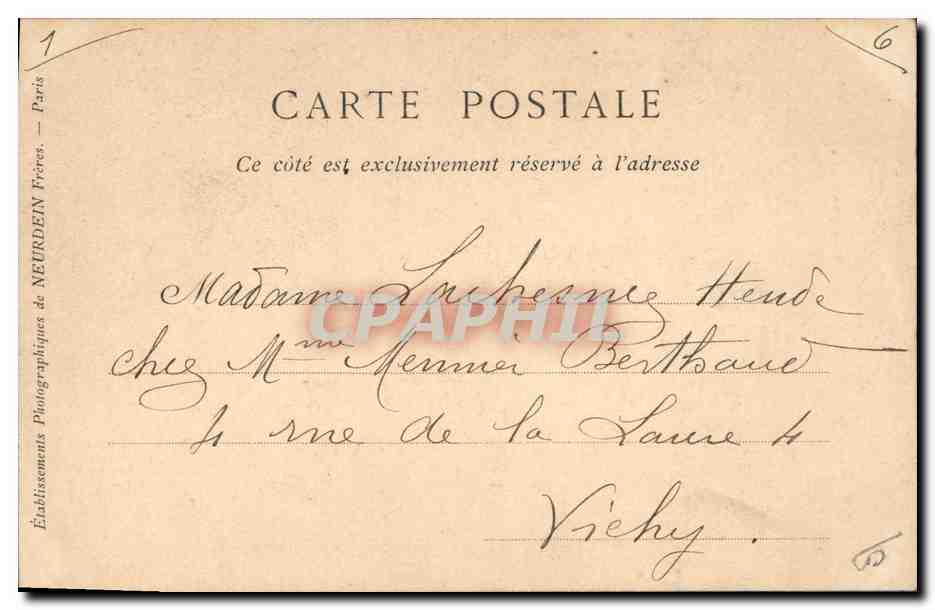 1
6
CARTE POSTALE
Ce côté est exclusivement réservé à l'adresse
Établissements Photographiques de NEURDEIN Frères. — Paris
Madame
CPAPHIL
chez Mme Berthaud
4 rue de la 4
Vichy.